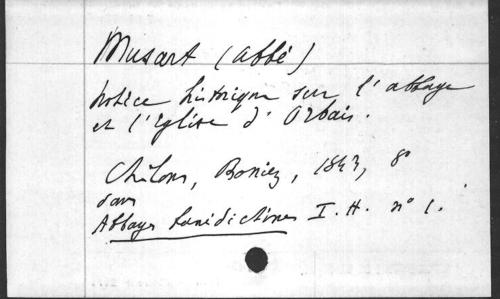 Musart (abbé)
Notice historique sur l'abbaye
et l'Eglise d'Orbais.
Châlons, Boniez, 1843, 8°
dans
Abbayes bénédictines I. H. n° 1.